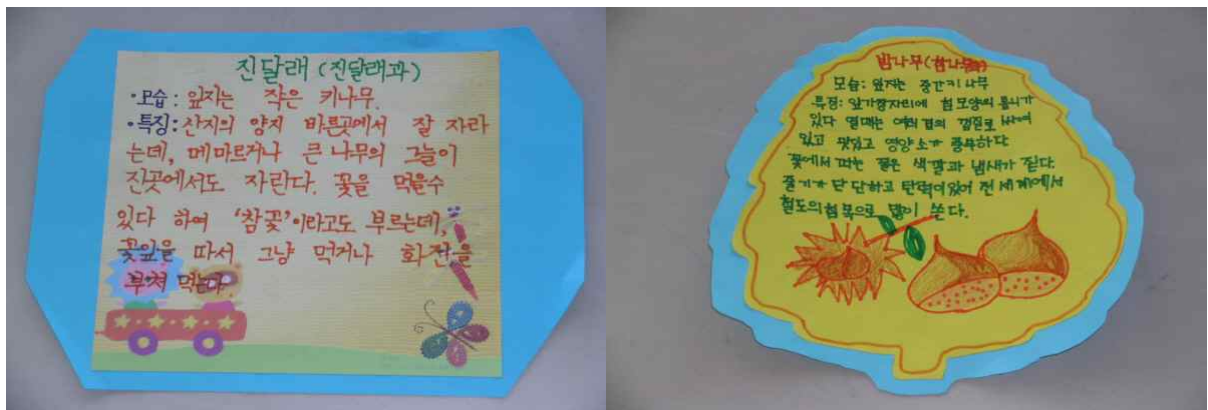 진달래 (진달래과)
•모습: 잎지는 작은 키나무.
•특징: 산지의 양지 바른곳에서 잘 자라
는데, 메마르거나 큰 나무의 그늘이
진곳에서도 자란다. 꽃을 먹을수
있다 하여 '참꽃'이라고도 부르는데,
꽃잎을 따서 그냥 먹거나 화전을
부쳐 먹는다
밤나무(참나무과)
모습: 잎지는 중간키나무
특징: 잎가장자리에 침모양의 톱니가
있다 열매는 여러겹의 껍질로 싸여
있고 맛있고 영양소가 풍부하다
꽃에서 나는 젖은 색깔과 냄새가 짙다.
줄기가 단단하고 탄력이있어 전 세계에서
철도의침목으로 많이 쓴다.